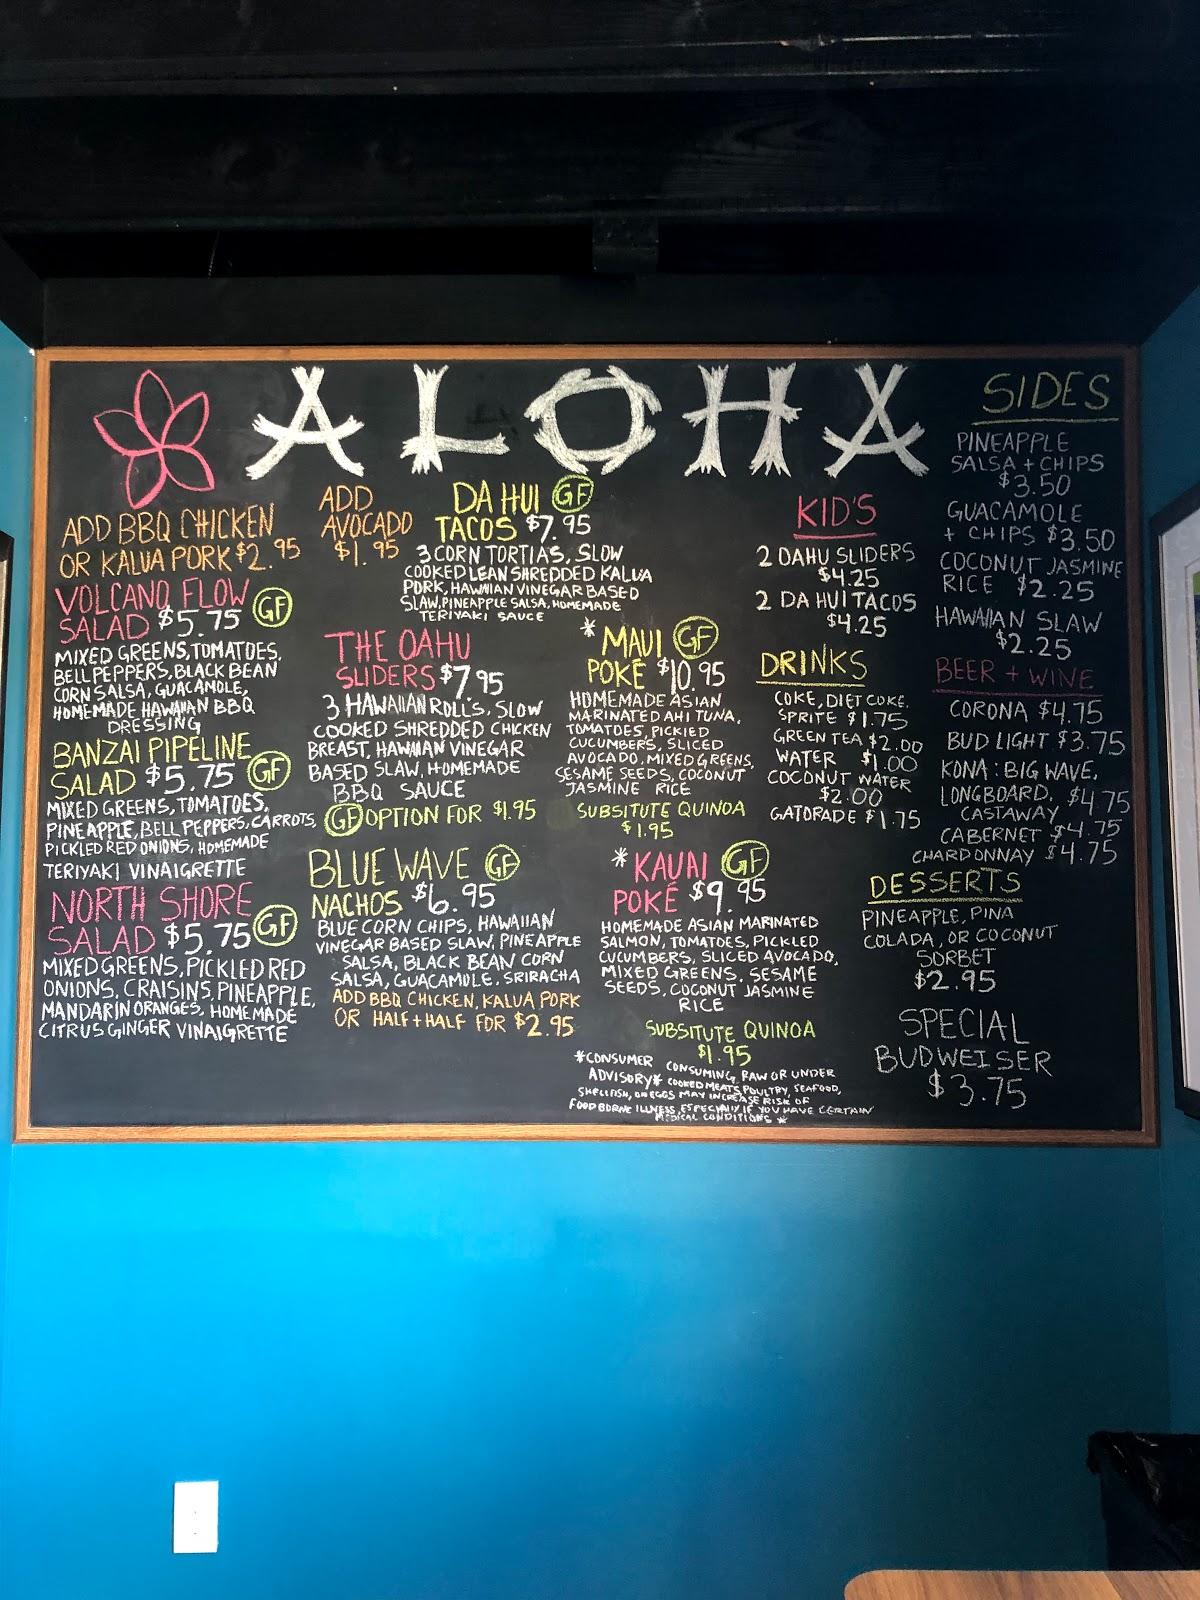 ALOHA
ADD BBQ CHICKEN
OR KALUA PORK $2.95
ADD
AVOCADO
$1.95
VOLCANO FLOW
SALAD $5.75 GF
MIXED GREENS, TOMATOES,
BELL PEPPERS, BLACK BEAN
CORN SALSA, GUACAMOLE,
HOMEMADE HAWAIIAN BBQ
DRESSING
BANZAI PIPELINE
SALAD $5.75 GF
MIXED GREENS, TOMATOES,
PINEAPPLE, BELL PEPPERS, CARROTS,
PICKLED RED ONIONS, HOMEMADE
TERIYAKI VINAIGRETTE
NORTH SHORE
SALAD $5.75 GF
MIXED GREENS, PICKLED RED
ONIONS, CRAISINS, PINEAPPLE,
MANDARIN ORANGES, HOMEMADE
CITRUS GINGER VINAIGRETTE
DA HUI GF
TACOS $7.95
3 CORN TORTIAS, SLOW
COOKED LEAN SHREDDED KALUA
PORK, HAWAIIAN VINEGAR BASED
SLAW, PINEAPPLE SALSA, HOMEMADE
TERIYAKI SAUCE
THE OAHU
SLIDERS $7.95
3 HAWAIIAN ROLLS, SLOW
COOKED SHREDDED CHICKEN
BREAST, HAWAIIAN VINEGAR
BASED SLAW, HOMEMADE
BBQ SAUCE
GF OPTION FOR $1.95
BLUE WAVE GF
NACHOS $6.95
BLUE CORN CHIPS, HAWAIIAN
VINEGAR BASED SLAW, PINEAPPLE
SALSA, BLACK BEAN CORN
SALSA, GUACAMOLE, SRIRACHA
ADD BBQ CHICKEN, KALUA PORK
OR HALF + HALF FOR $2.95
* MAUI GF
POKÉ $10.95
HOMEMADE ASIAN
MARINATED AHI TUNA,
TOMATOES, PICKLED
CUCUMBERS, SLICED
AVOCADO, MIXED GREENS,
SESAME SEEDS, COCONUT
JASMINE RICE
SUBSITUTE QUINOA
$1.95
* KAUAI GF
POKÉ $9.95
HOMEMADE ASIAN MARINATED
SALMON, TOMATOES, PICKLED
CUCUMBERS, SLICED AVOCADO,
MIXED GREENS, SESAME
SEEDS, COCONUT JASMINE
RICE
SUBSITUTE QUINOA
$1.95
*CONSUMER CONSUMING, RAW OR UNDER
ADVISORY* COOKED MEATS, POULTRY, SEAFOOD,
SHELLFISH, OR EGGS MAY INCREASE RISK OF
FOOD BORNE ILLNESS, ESPECIALLY IF YOU HAVE CERTAIN
MEDICAL CONDITIONS *
KID'S
2 OAHU SLIDERS
$4.25
2 DA HUI TACOS
$4.25
DRINKS
COKE, DIET COKE,
SPRITE $1.75
GREEN TEA $2.00
WATER $1.00
COCONUT WATER
$2.00
GATORADE $1.75
SIDES
PINEAPPLE
SALSA + CHIPS
$3.50
GUACAMOLE
+ CHIPS $3.50
COCONUT JASMINE
RICE $2.25
HAWAIIAN SLAW
$2.25
BEER + WINE
CORONA $4.75
BUD LIGHT $3.75
KONA: BIG WAVE,
LONGBOARD, $4.75
CASTAWAY
CABERNET $4.75
CHARDONNAY $4.75
DESSERTS
PINEAPPLE, PINA
COLADA, OR COCONUT
SORBET
$2.95
SPECIAL
BUDWEISER
$3.75